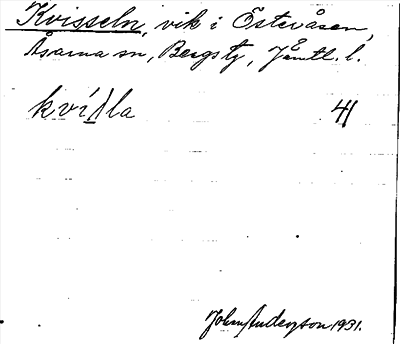 Kvisseln, vik i Östevåsen,
Åsarna sn, Bergs tg, Jämtl. l.
41
John Anderzson 1931.